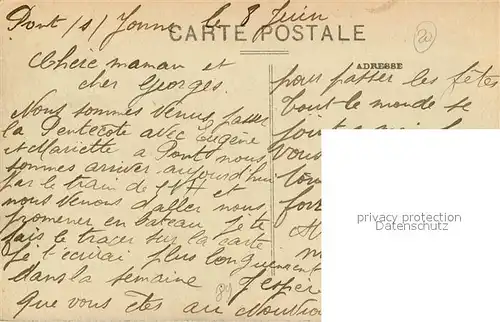 Pont /s/ Yonne le 8 Juin
CARTE POSTALE
20
ADRESSE
Chère maman et
cher Georges.
Nous sommes venus passer
la Pentecôte avec Eugène
et Mariette a Pont nous
sommes arriver aujourd'hui
par le train de et
nous venons d'aller nous
promener en bateau je te
fais le tracer sur la carte
je t'ecrirai plus longuement
dans la semaine J'espère
que vous êtes au
89
pour passer les fêtes
tout le monde se
joint a
vous
privacy protection
Datenschutz